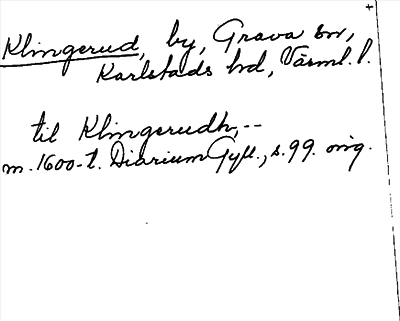 Klingerud, by, Grava sn,
Karlstads hd, Värml. l.
til Klingerudh, --
m. 1600-t. Diarium Gyll., s. 99. orig.